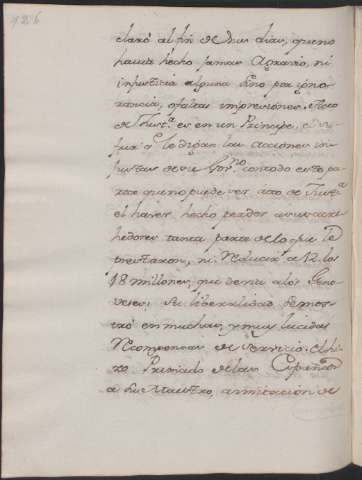 126
claró al fin de sus dias, que no
havia hecho jamas Agravio, ni
injusticia alguna sino por igno
rancia, o falsas impresiones. Acto
de Just.ª es en un Principe, el
q.e le digan las acciones in
justas de su Gov.no con todo esto pa
rece que no puede ser acto de Just.ª
el haver hecho perder a sus acre
hedores tanta parte de lo que le
prestaron, ni reducir a 12 los
18 millones, que devia a los Geno
veses. Su liberalidad demos
tró en muchas, y muy lucidas
recompensas de servicio. el hi
zo Primado de las Españas
a su Maestro, a imitacion de